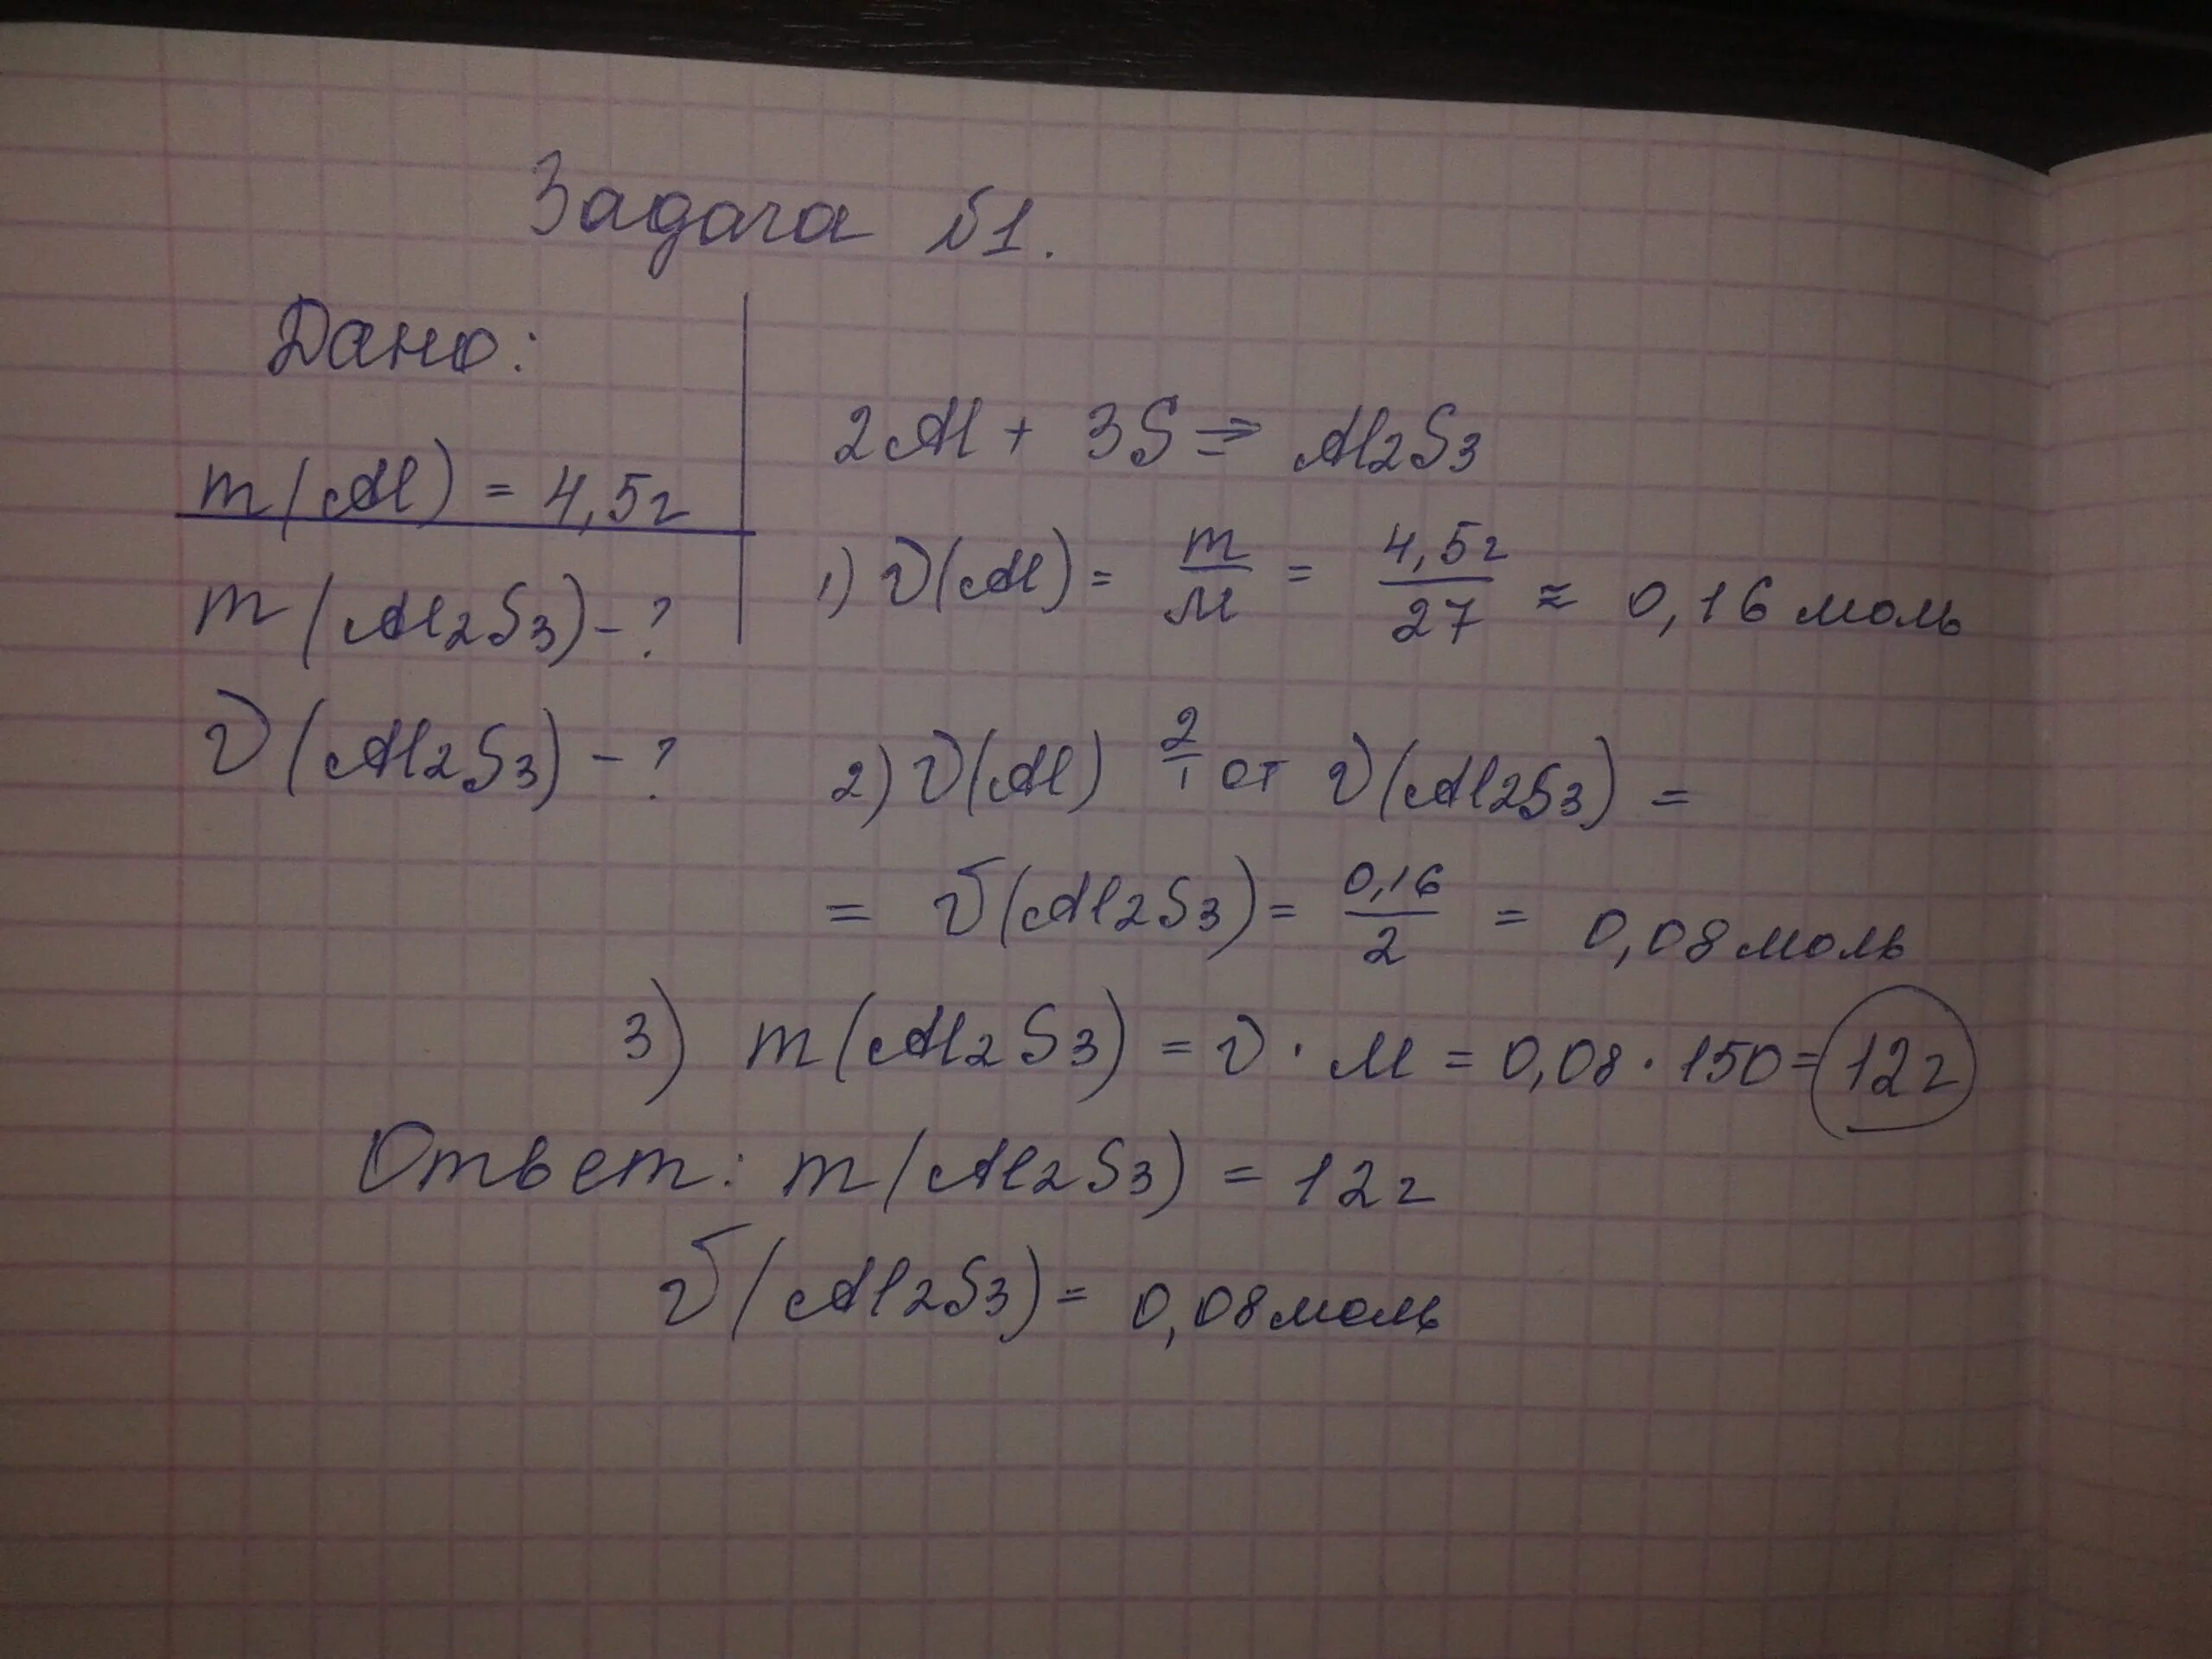 Задача №1.
Дано:
m(Al) = 4,5г
m(Al2S3) - ?
ν(Al2S3) - ?
2Al + 3S => Al2S3
1) ν(Al) = m/M = 4,5г/27 ≈ 0,16 моль
2) ν(Al) 2/1 от ν(Al2S3) =
= ν(Al2S3) = 0,16/2 = 0,08 моль
3) m(Al2S3) = ν · M = 0,08 · 150 = 12г
Ответ: m(Al2S3) = 12г
ν(Al2S3) = 0,08 моль